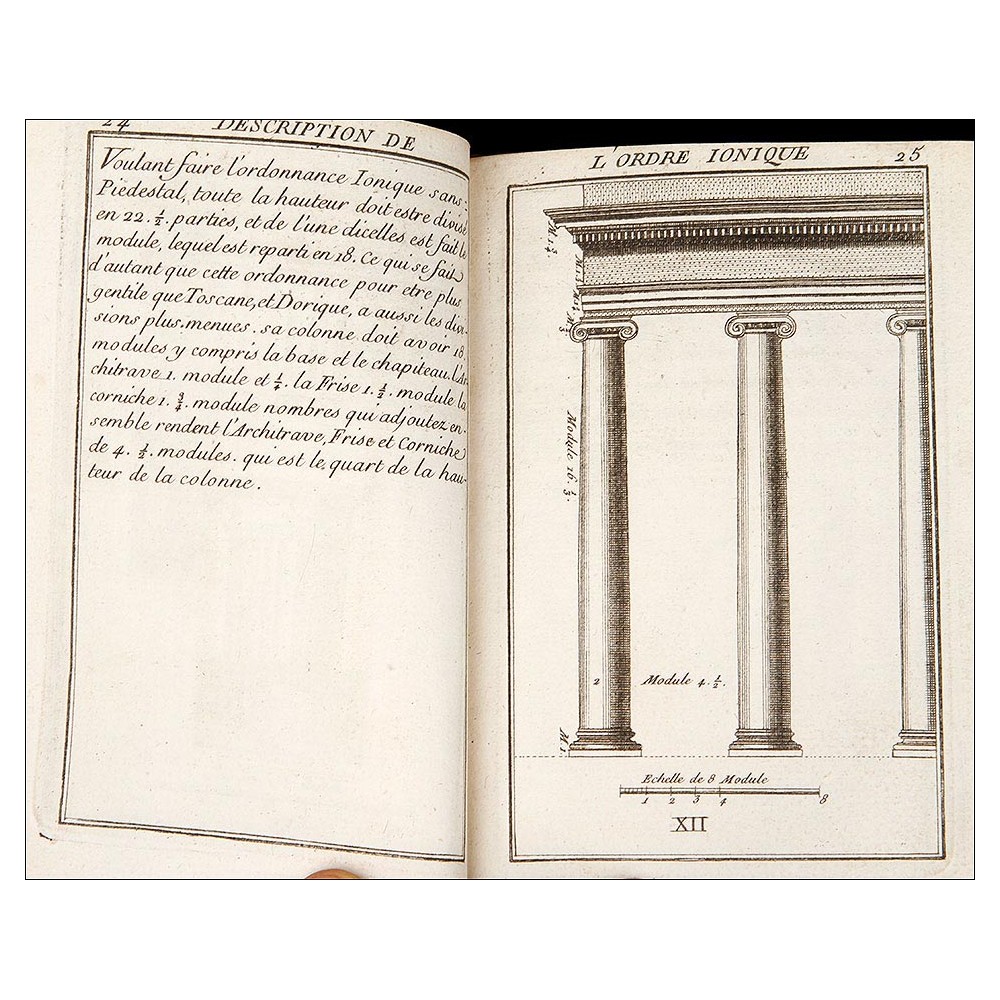 24
DESCRIPTION DE
Voulant faire l'ordonnance Ionique sans
Piedestal, toute la hauteur doit estre divisé
en 22. 1/2. parties, et de l'une dicelles est fait le
module, lequel est reparti en 18. Ce qui se fait
d'autant que cette ordonnance pour etre plus
gentile que Toscane, et Dorique, a aussi les divi-
sions plus menues. sa colonne doit avoir 18.
modules y compris la base et le chapiteau. l'Ar-
chitrave 1. module et 1/4. la Frise 1. 1/2. module la
corniche 1. 3/4. module nombres qui adjoutez en-
semble rendent l'Architrave, Frise et Corniche
de 4. 1/2. modules. qui est le quart de la hau-
teur de la colonne.
L'ORDRE IONIQUE
25
M. 1 3/4
Module 16. 1/3.
2
Module 4. 1/2.
M. 1
Echelle de 8 Module
1 2 3 4 8
XII